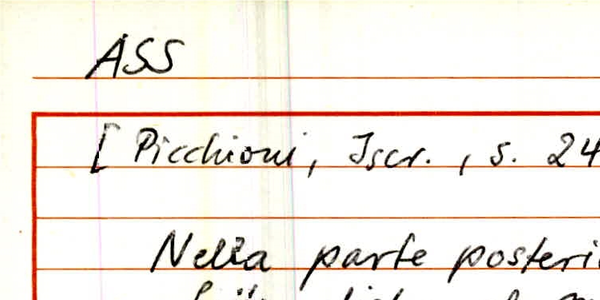 ASS
[ Picchioni, Iscr., s. 24
Nella parte posteri